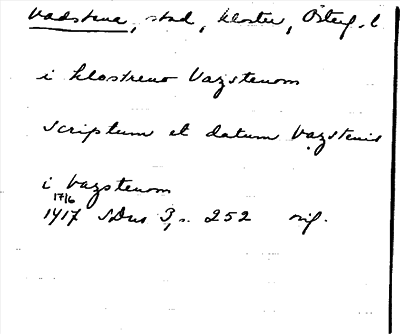 Vadstena, stad, kloster, Österg. l.
i klostreno Vazstenom
scriptum et datum Vazstenis
i Vazstenom
17/6
1417 SDns 3, s. 252 orig.